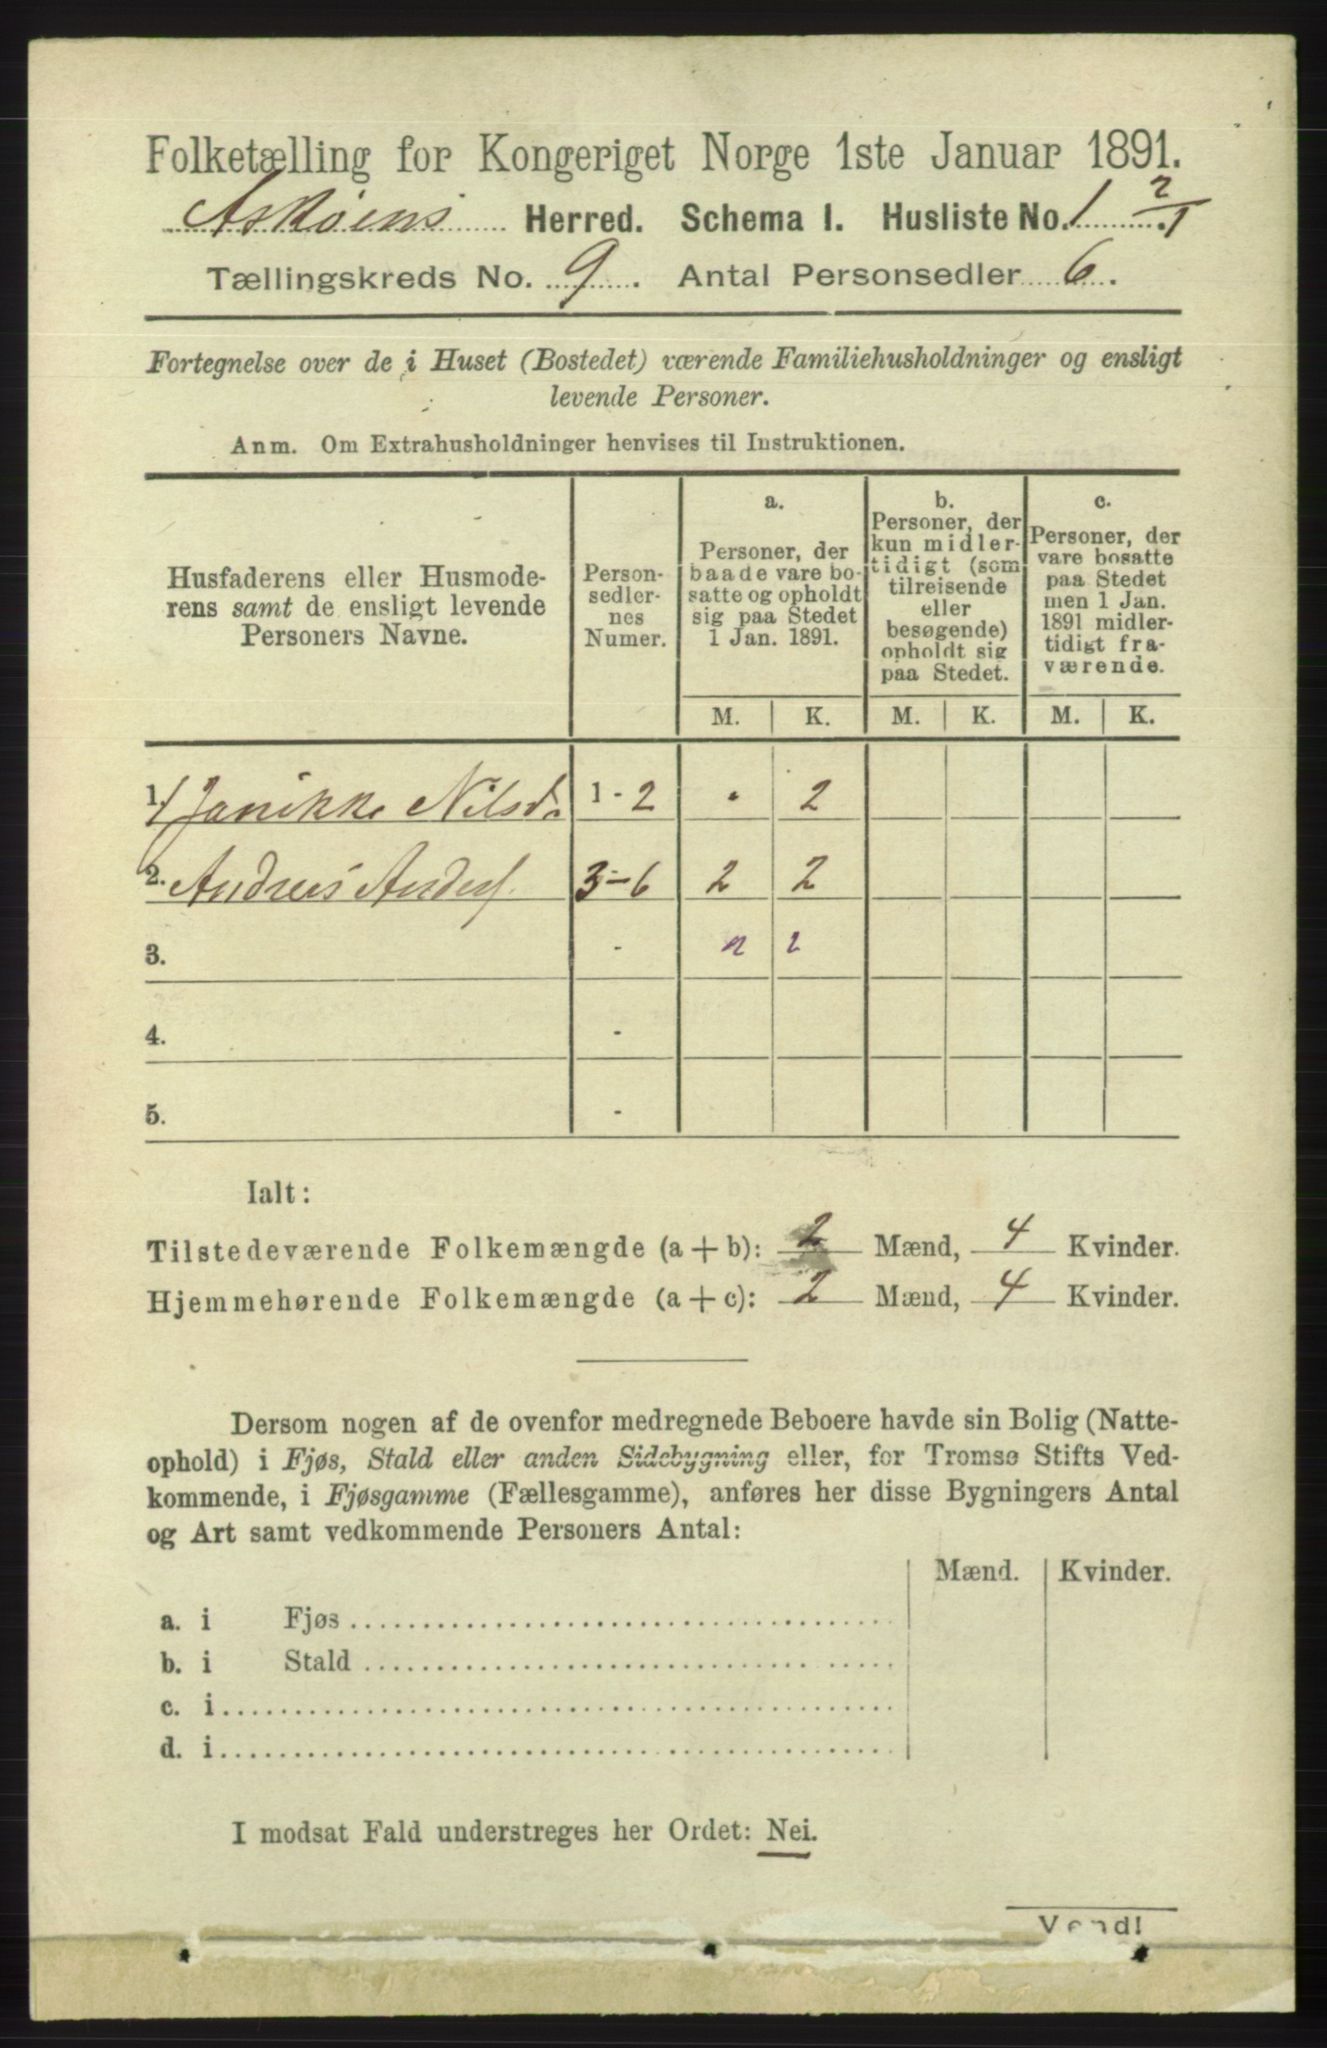 Folketælling for Kongeriget Norge 1ste Januar 1891.
Askøens Herred. Schema I. Husliste No. 1 2/1
Tællingskreds No. 9. Antal Personsedler 6.
Fortegnelse over de i Huset (Bostedet) værende Familiehusholdninger og ensligt
levende Personer.
Anm. Om Extrahusholdninger henvises til Instruktionen.
Husfaderens eller Husmode-
rens samt de ensligt levende
Personers Navne.
Person-
sedler-
nes
Numer.
a.
Personer, der
baade vare bo-
satte og opholdt
sig paa Stedet
1 Jan. 1891.
b.
Personer, der
kun midler-
tidigt (som
tilreisende
eller
besøgende)
opholdt sig
paa Stedet.
c.
Personer, der
vare bosatte
paa Stedet
men 1 Jan.
1891 midler-
tidigt fra-
værende.
M. K. M. K. M. K.
1. Janikke Nilsd. 1 - 2 • 2
2. Andreas Anders. 3 - 6 2 2
3. - 2 2
4. -
5. -
Ialt:
Tilstedeværende Folkemængde (a + b): 2 Mænd, 4 Kvinder.
Hjemmehørende Folkemængde (a + c): 2 Mænd, 4 Kvinder.
Dersom nogen af de ovenfor medregnede Beboere havde sin Bolig (Natte-
ophold) i Fjøs, Stald eller anden Sidebygning eller, for Tromsø Stifts Ved-
kommende, i Fjøsgamme (Fællesgamme), anføres her disse Bygningers Antal
og Art samt vedkommende Personers Antal:
Mænd. Kvinder.
a. i Fjøs
b. i Stald
c. i
d. i
I modsat Fald understreges her Ordet: Nei.
Vend!